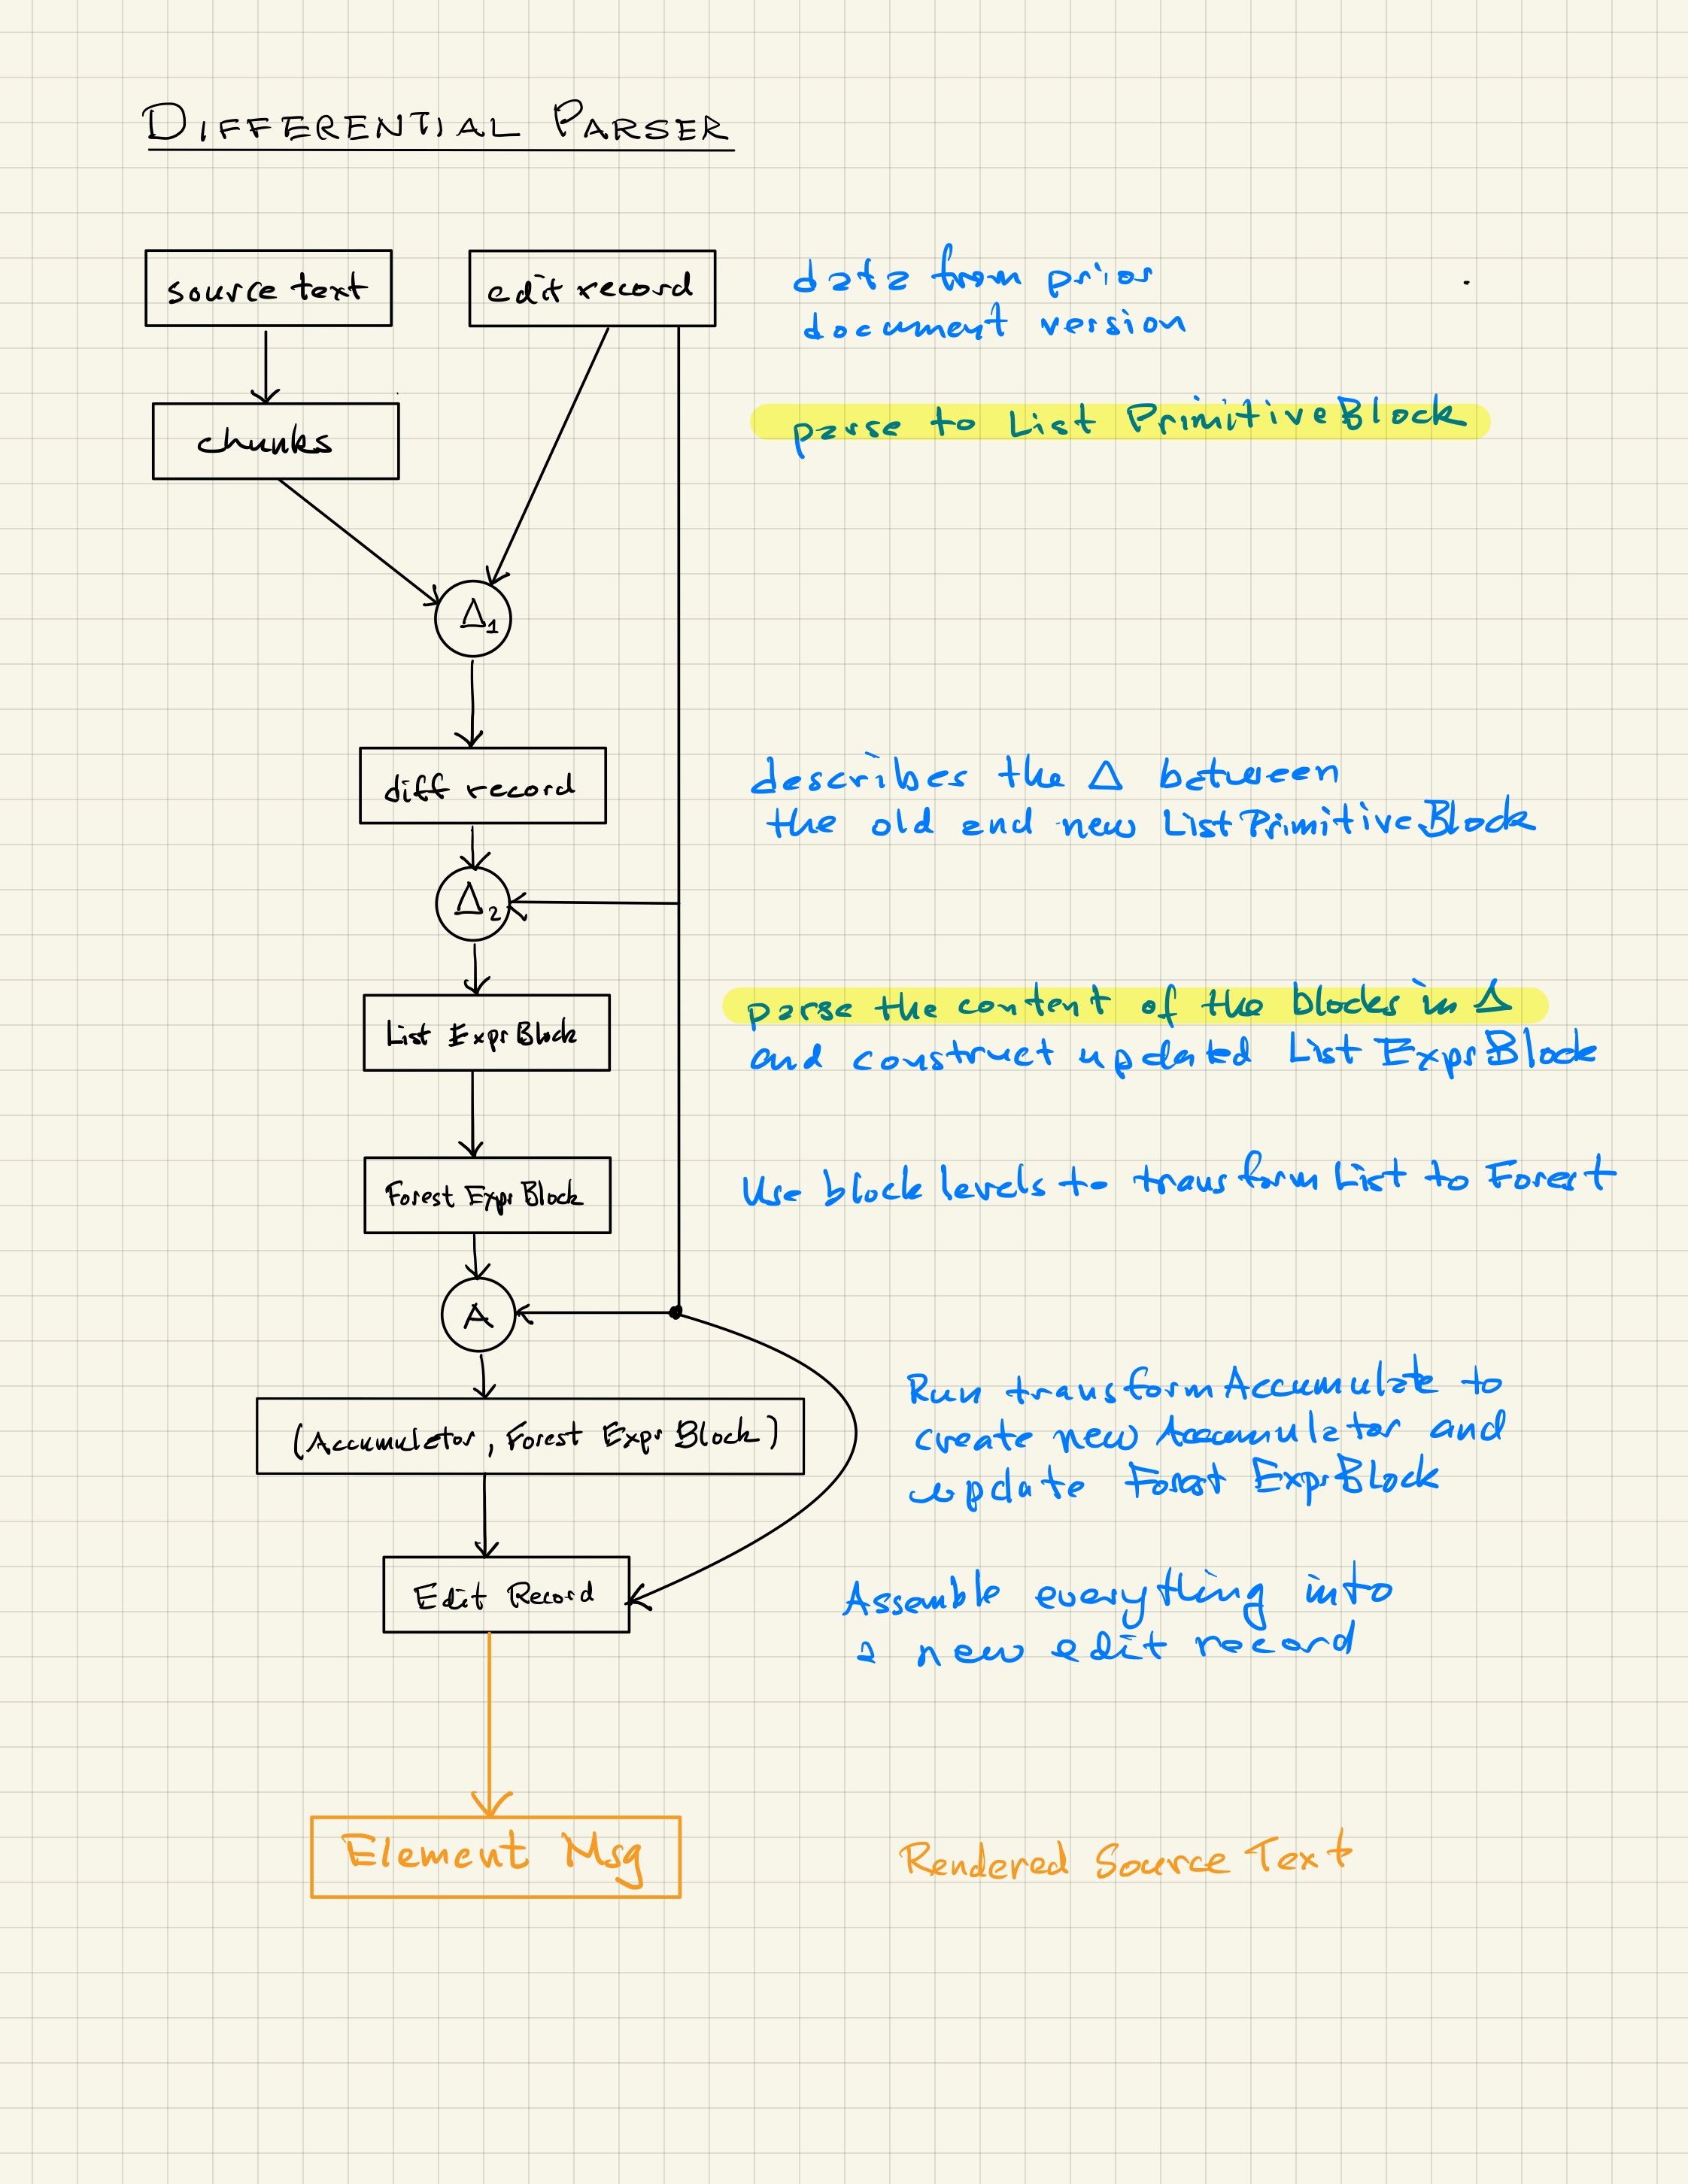 DIFFERENTIAL PARSER
source text
edit record
data from prior
document version
chunks
parse to List PrimitiveBlock
Δ1
diff record
describes the Δ between
the old and new List PrimitiveBlock
Δ2
List ExprBlock
parse the content of the blocks in Δ
and construct updated List ExprBlock
Forest ExprBlock
Use block levels to transform List to Forest
A
(Accumulator, Forest ExprBlock)
Run transformAccumulate to
create new Accumulator and
update Forest ExprBlock
Edit Record
Assemble everything into
a new edit record
Element Msg
Rendered Source Text